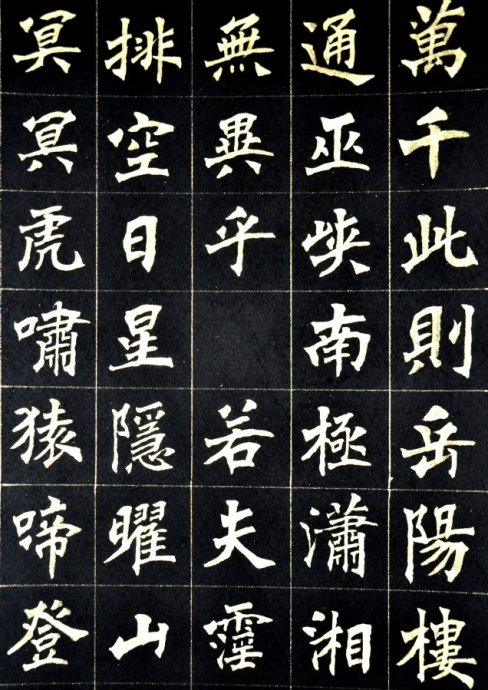 萬千此則岳陽樓
通巫峽南極瀟湘
無異乎 若夫霪
排空日星隱曜山
冥冥虎嘯猿啼登